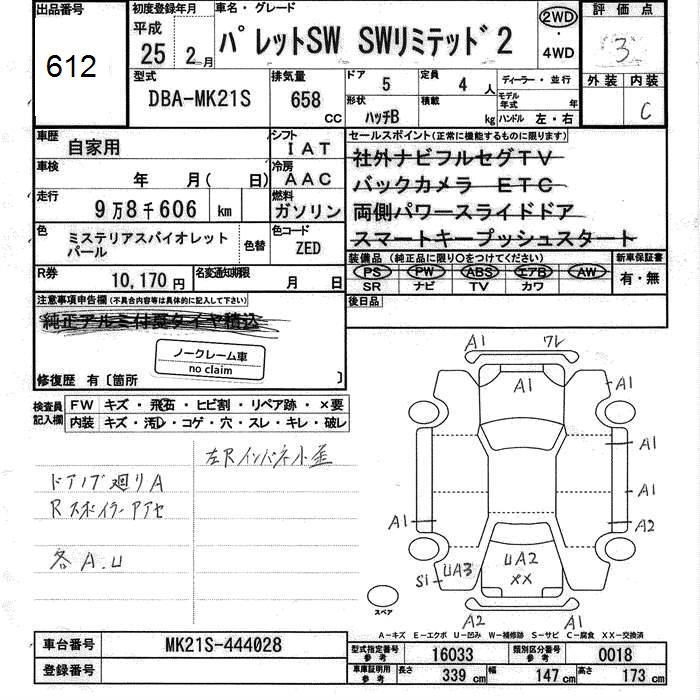 出品番号 612
初度登録年月 平成 25年 2月
車名・グレード パレットSW SWリミテッド2
2WD・4WD
評価点 3
外装 内装 C
型式 DBA-MK21S
排気量 658 CC
ドア 5
定員 4人
形状 ハッチB
積載 kg
ディーラー・並行
モデル年式 年
ハンドル 左・右
車歴 自家用
シフト IAT
車検 年 月( 日)
冷房 AAC
走行 9万8千606 km
燃料 ガソリン
色 ミステリアスバイオレットパール
色替
色コード ZED
R券 10,170円
名変通知期限 月 日
セールスポイント(正常に機能するものに限ります)
社外ナビフルセグTV
バックカメラ ETC
両側パワースライドドア
スマートキープッシュスタート
装備品(純正品に限り○をつけてください)
新車保証書
PS PW ABS エアB AW
SR ナビ TV カワ
有・無
後日品
注意事項申告欄(不具合内容等は具体的に記入して下さい)
純正アルミ付夏タイヤ積込
ノークレーム車
no claim
修復歴 有〔箇所 〕
検査員記入欄
FW キズ・飛石・ヒビ割・リペア跡・×要
内装 キズ・汚レ・コゲ・穴・スレ・キレ・破レ
左Rインパネ小歪
ドアノブ廻りA
Rスポイラーアアセ
各A.U
A1 ワレ
A1
A1
A1
A1
A1
A2
UA3
UA2
XX
S1
A2
A1
スペア
A-キズ E-エクボ U-凹み W-補修跡 S-サビ C-腐食 XX-交換済
車台番号 MK21S-444028
登録番号
型式指定番号 参考 16033
類別区分番号 参考 0018
車庫証明用 参考 長さ 339 cm 幅 147 cm 高さ 173 cm